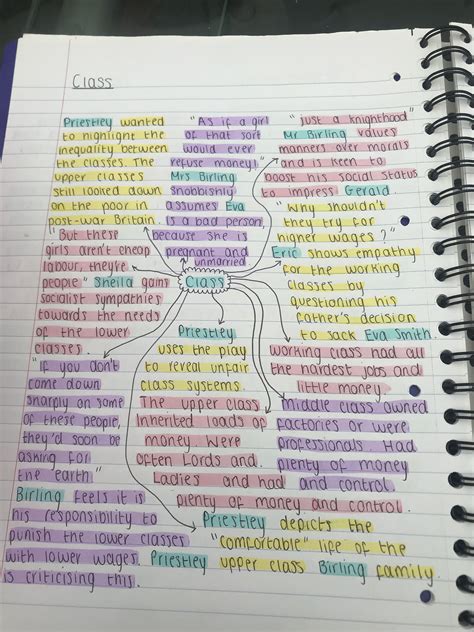 Class
Priestley wanted
to highlight the
inequality between
the classes. The
upper classes
still looked down
on the poor in
post-war Britain.
"As if a girl
of that sort
would ever
refuse money!"
Mrs Birling
snobbishly
assumes Eva
is a bad person,
because she is
pregnant and
unmarried
"just a knighthood"
Mr Birling values
manners over morals
and is keen to
boost his social status
to impress Gerald.
"Why shouldn't
they try for
higher wages?"
Eric shows empathy
for the working
classes by
questioning his
father's decision
to sack Eva Smith.
"But these
girls aren't cheap
labour, they're
people" Sheila gains
socialist sympathies
towards the needs
of the lower
classes.
Class
Priestley
uses the play
to reveal unfair
class systems.
working class had all
the hardest jobs and
little money
"If you don't
come down
sharply on some
of these people,
they'd soon be
asking for
the earth"
Birling feels it is
his responsibility to
punish the lower classes
with lower wages. Priestley
is criticising this.
The upper class
inherited loads of
money. Were
often Lords and
Ladies and had
plenty of money and control.
middle class owned
factories or were
professionals. Had
plenty of money
and control.
Priestley depicts the
"comfortable" life of the
upper class Birling family.